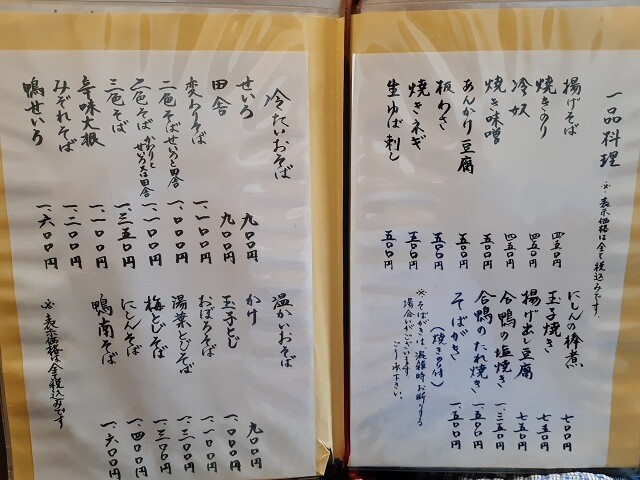 一品料理
※表示価格は全て税込みです。
揚げそば 四五〇円
焼きのり 四五〇円
冷奴 四五〇円
焼き味噌 五〇〇円
あんかけ豆腐 五〇〇円
板わさ 五〇〇円
焼きネギ 五〇〇円
生ゆば刺し 五〇〇円
にしんの棒煮 七〇〇円
玉子焼き 七五〇円
揚げ出し豆腐 七五〇円
合鴨の塩焼き 一、三五〇円
合鴨のたれ焼き 一、五〇〇円
そばがき(焼きのり付) 一、五〇〇円
※そばがきは、混雑時お断りする
場合がございます
ご了承下さい。
冷たいおそば
せいろ 九〇〇円
田舎 九〇〇円
変わりそば 一、一〇〇円
二色そば せいろと田舎 一、〇〇〇円
二色そば かわりとせいろ又は田舎 一、一〇〇円
三色そば 一、三五〇円
辛味大根 一、一〇〇円
みぞれそば 一、二〇〇円
鴨せいろ 一、六〇〇円
温かいおそば
かけ 九〇〇円
玉子とじ 一、〇〇〇円
おぼろそば 一、一〇〇円
湯葉とじそば 一、三〇〇円
梅とじそば 一、三〇〇円
にしんそば 一、四〇〇円
鴨南そば 一、六〇〇円
※表示価格は全て税込みです